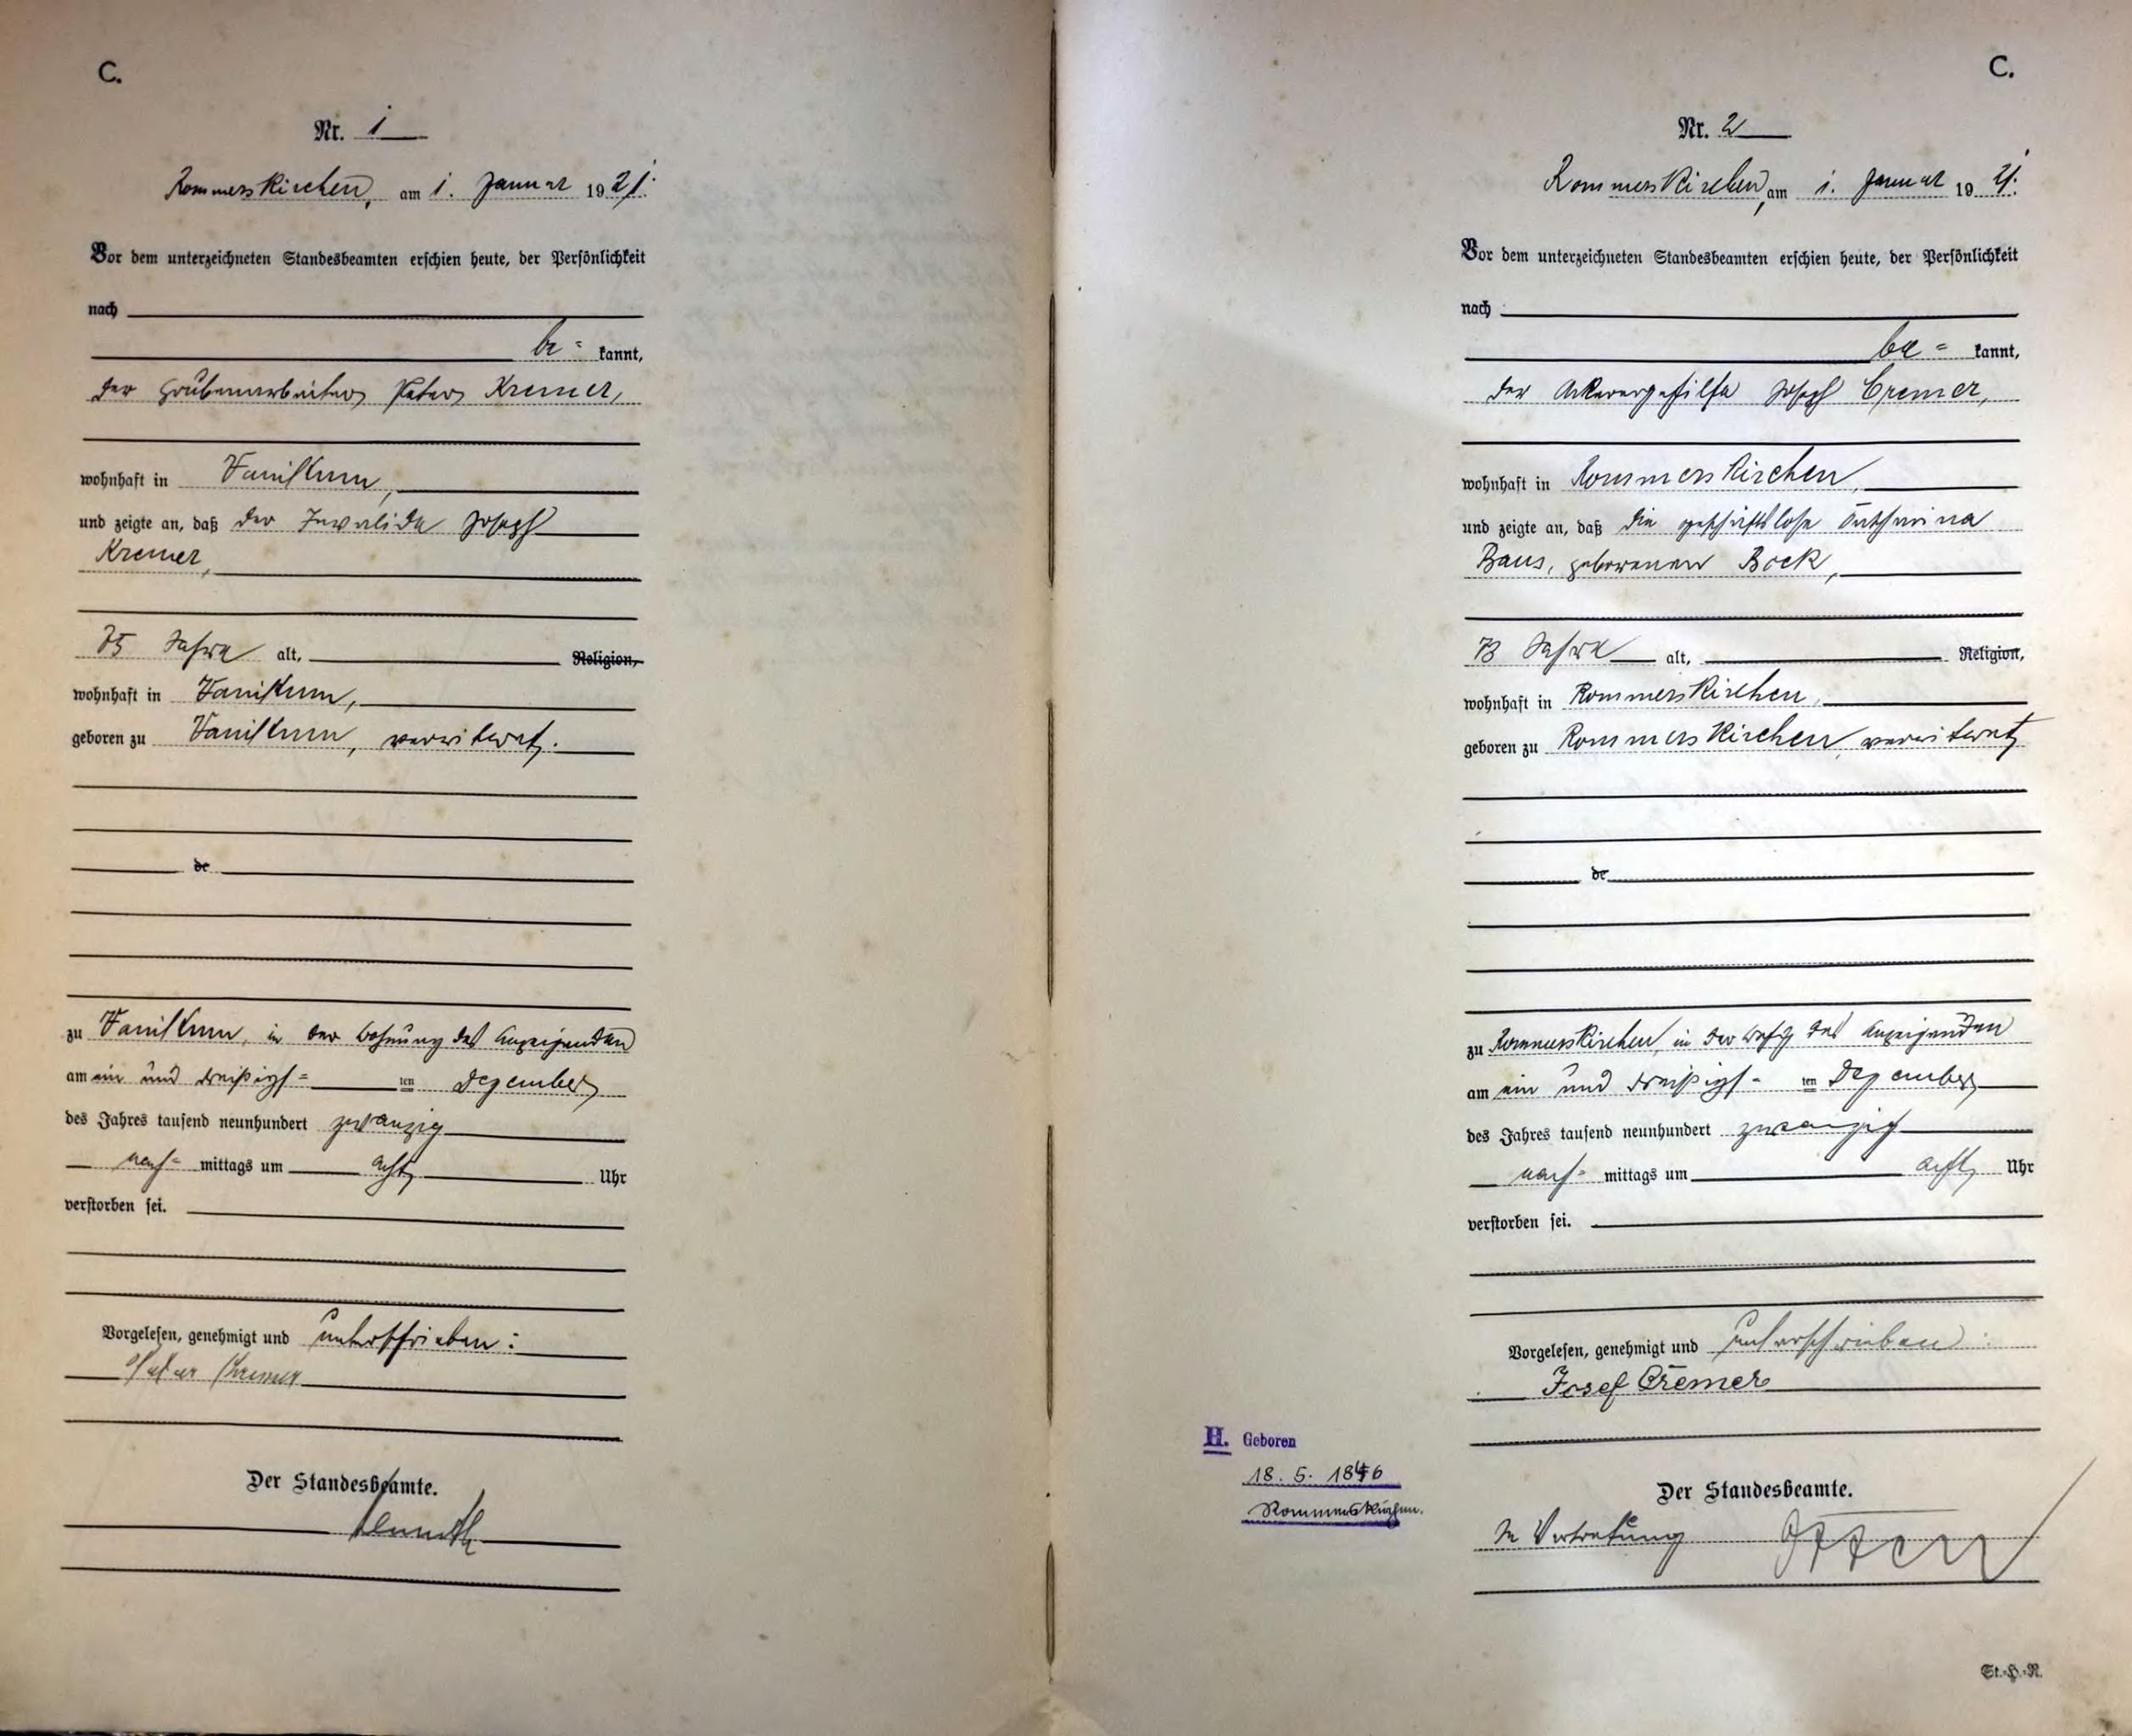 C.
Nr. 1
Rommerskirchen, am 1. Januar 1921.
Vor dem unterzeichneten Standesbeamten erschien heute, der Persönlichkeit
nach
be= kannt,
der Grubenarbeiter Peter Kremer,
wohnhaft in Vanikum,
und zeigte an, daß der Invalide Joseph
Kremer,
75 Jahre alt, Religion,
wohnhaft in Vanikum,
geboren zu Vanikum, verwitwet.
de
zu Vanikum, in der Wohnung des Anzeigenden
am ein und dreißigs= ten Dezember
des Jahres tausend neunhundert zwanzig
nach= mittags um acht Uhr
verstorben sei.
Vorgelesen, genehmigt und unterschrieben:
Peter Kremer
Der Standesbeamte.
C.
Nr. 2
Rommerskirchen, am 1. Januar 1921.
Vor dem unterzeichneten Standesbeamten erschien heute, der Persönlichkeit
nach
be= kannt,
der Ackerergehilfe Joseph Cremer,
wohnhaft in Rommerskirchen,
und zeigte an, daß die geschäftslose Katharina
Baus, geborenen Bock,
73 Jahre alt, Religion,
wohnhaft in Rommerskirchen,
geboren zu Rommerskirchen, verwitwet
de
zu Rommerskirchen, in der Wohg des Anzeigenden
am ein und dreißigs= ten Dezember
des Jahres tausend neunhundert zwanzig
nach= mittags um acht Uhr
verstorben sei.
Vorgelesen, genehmigt und unterschrieben:
Josef Cremer
H. Geboren
18. 5. 1846
Rommerskirchen.
Der Standesbeamte.
In Vertretung
St.-H.-R.